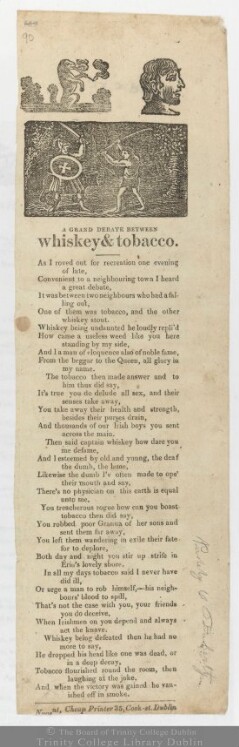 90
A GRAND DEBATE BETWEEN
whiskey & tobacco.
As I roved out for recreation one evening
of late,
Convenient to a neighbouring town I heard
a great debate,
It was between two neighbours who had a fal
ling out,
One of them was tobacco, and the other
whiskey stout.
Whiskey being undaunted he loudly repli'd
How came a useless weed like you here
standing by my side,
And I a man of eloquence also of noble fame,
From the beggar to the Queen, all glory is
my name.
The tobacco then made answer and to
him thus did say,
It's true you do delude all sex, and their
senses take away,
You take away their health and strength,
besides their purses drain,
And thousands of our Irish boys you sent
across the main.
Then said captain whiskey how dare you
me defame,
And I esteemed by old and young, the deaf
the dumb, the lame,
Likewise the dumb I've often made to ope'
their mouth and say,
There's no physician on this earth is equal
unto me,
You treacherous rogue how can you boast
tobacco then did say,
You robbed poor Granua of her sons and
sent them far away,
You left them wandering in exile their fate
for to deplore,
Both day and night you stir up strife in
Erin's lovely shore.
In all my days tobacco said I never have
did ill,
Or urge a man to rob himself,—his neigh-
bours' blood to spill,
That's not the case with you, your friends
you do deceive,
When Irishmen on you depend and always
act the knave.
Whiskey being defeated then he had no
more to say,
He dropped his head like one was dead, or
in a deep decay,
Tobacco flourished round the room, then
laughing at the joke,
And when the victory was gained he van-
ished off in smoke.
Cheap Printer 35, Cook-st. Dublin
© The Board of Trinity College Dublin
Trinity College Library Dublin